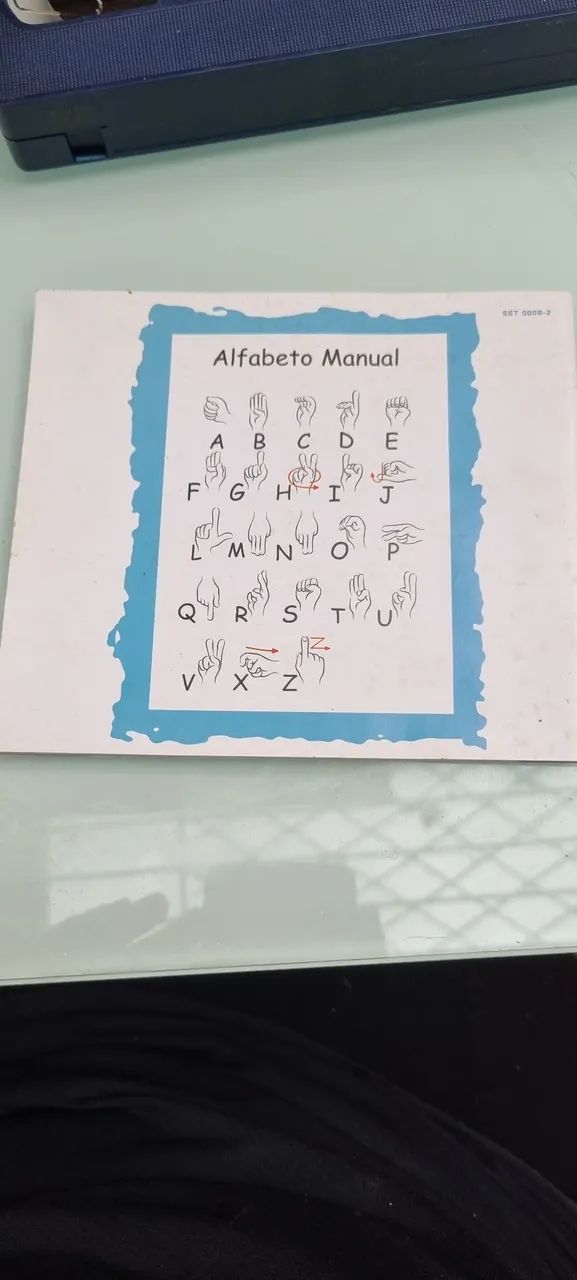 SET 0008-2
Alfabeto Manual
A B C D E
F G H I J
L M N O P
Q R S T U
V X Z